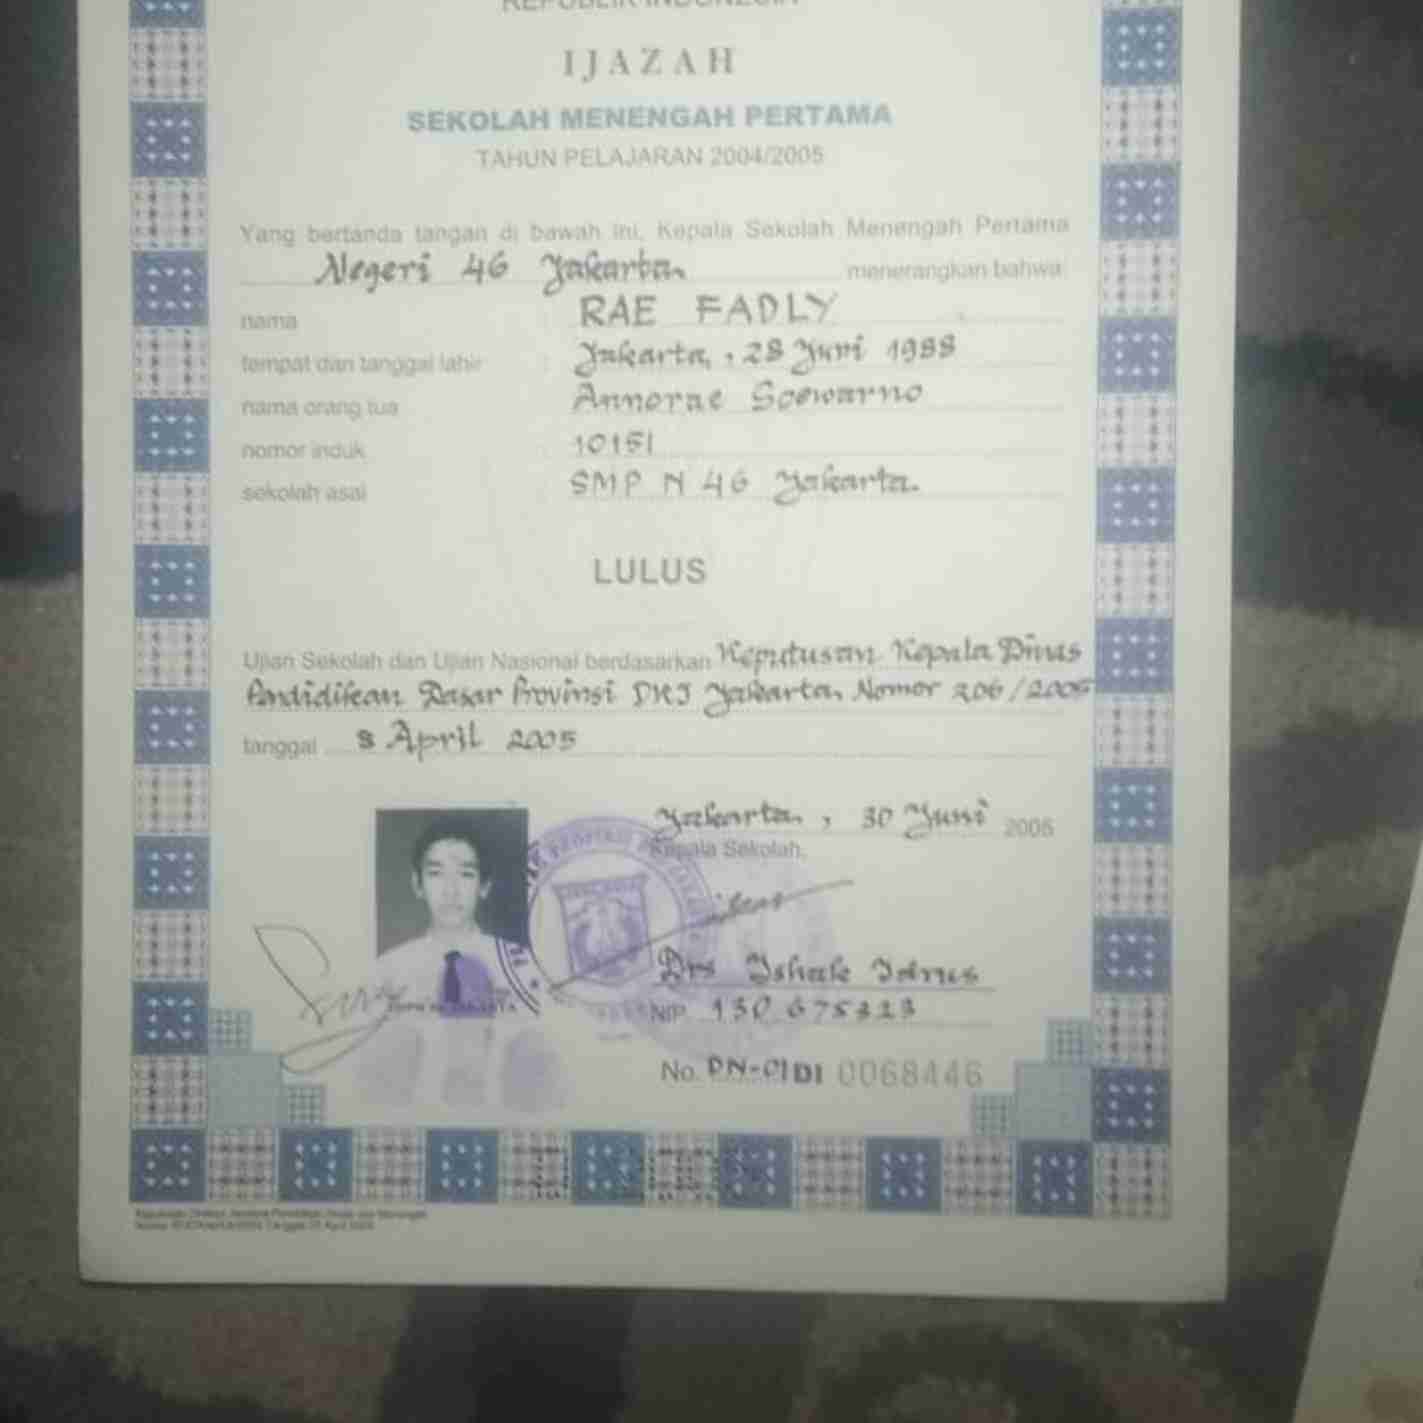 REPUBLIK INDONESIA
IJAZAH
SEKOLAH MENENGAH PERTAMA
TAHUN PELAJARAN 2004/2005
Yang bertanda tangan di bawah ini, Kepala Sekolah Menengah Pertama
Negeri 46 Jakarta menerangkan bahwa:
nama : RAE FADLY
tempat dan tanggal lahir : Jakarta, 28 Juni 1988
nama orang tua : Annorae Soewarno
nomor induk : 10151
sekolah asal : SMP N 46 Jakarta.
LULUS
Ujian Sekolah dan Ujian Nasional berdasarkan Keputusan Kepala Dinas
Pendidikan Dasar Provinsi DKI Jakarta Nomor 206/2005
tanggal 8 April 2005
Jakarta, 30 Juni 2005
Kepala Sekolah,
Drs Ishak Idrus
NIP. 130 675323
No. DN-01 DI 0068446